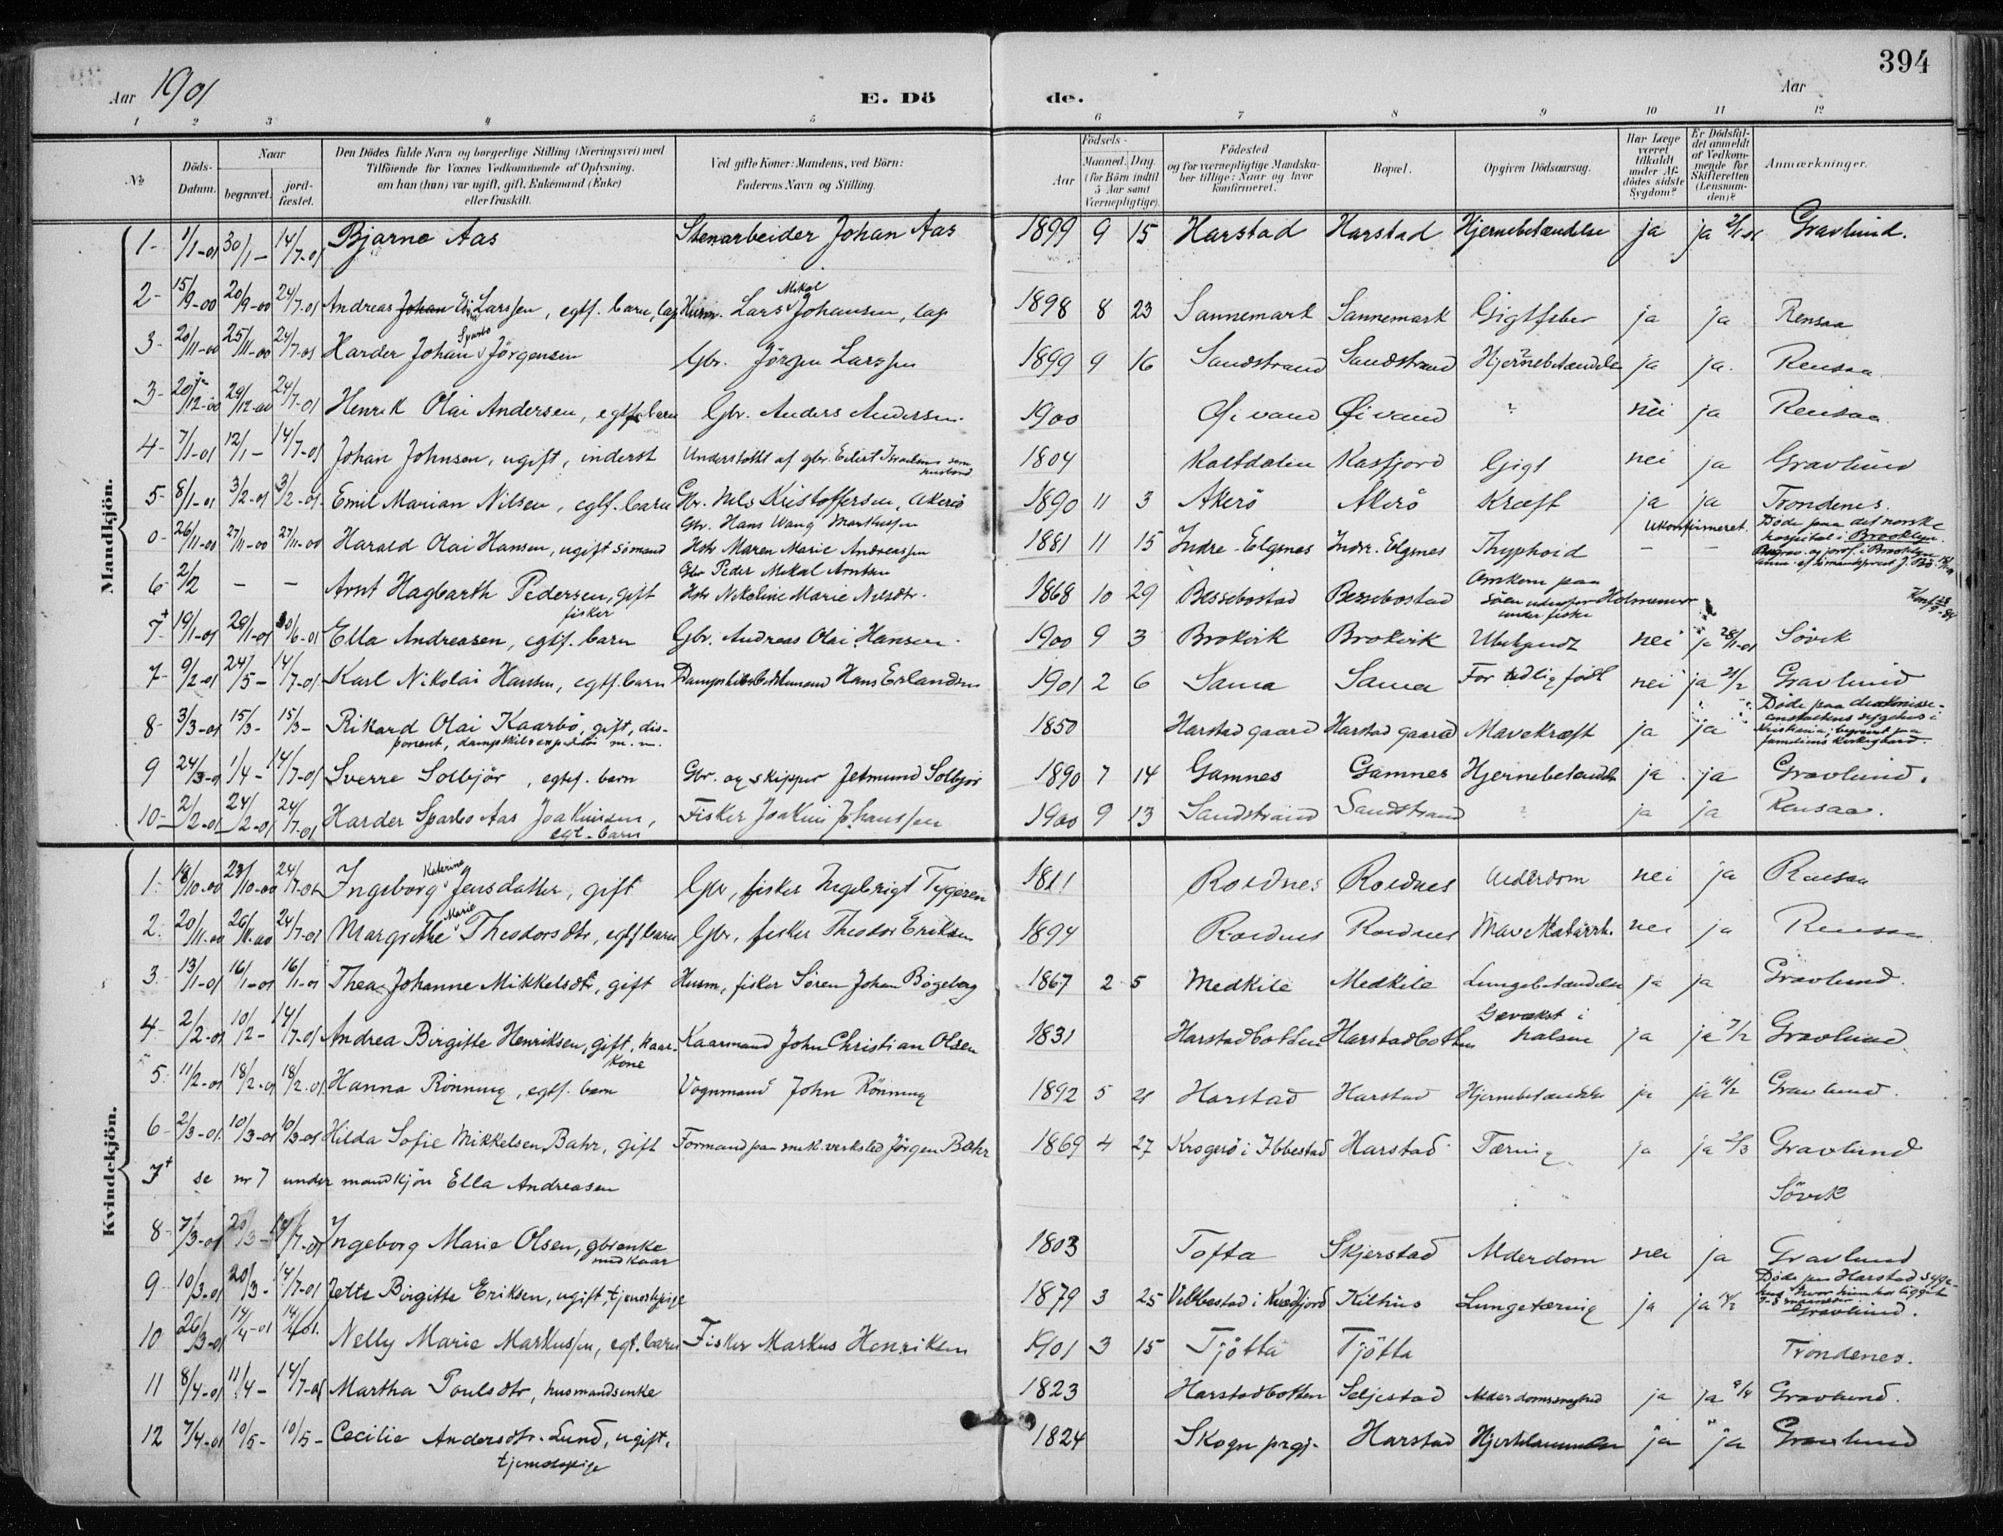 394
Aar 1901 E. Dö de. Aar
1 2 3 4 5 6 7 8 9 10 11 12
№
Döds-Datum.
Naar
begravet.
jord-fæstet.
Den Dödes fulde Navn og borgerlige Stilling (Næringsvei) med
Tilföiende for Voxnes Vedkommende af Oplysning,
om han (hun) var ugift, gift, Enkemand (Enke)
eller fraskilt.
Ved gifte Koner: Mandens, ved Börn:
Faderens Navn og Stilling.
Födsels-
Aar
Maaned. Dag.
(for Börn indtil
5 Aar samt
Værnepligtige).
Födested
og for værnepligtige Mandska-
ber tillige: Naar og hvor
konfirmeret.
Bopæl.
Opgiven Dödsaarsag.
Har Læge
været
tilkaldt
under Af-
dödes sidste
Sygdom?
Er Dödsfal-
det anmeldt
af Vedkom-
mende for
Skifteretten
(Lensman-
den)?
Anmærkninger.
Mandkjön.
1- 1/1-01 30/1- 14/7-01 Bjarne Aas Stenarbeider Johan Aas 1899 9 15 Harstad Harstad Hjernebetændelse ja ja Gravlund.
2- 15/9-00 20/9-00 24/7-01 Andreas Johan Larssen, egtf. barn, lap Husm. Lars Mikal Johansen, lap 1898 8 23 Sannemark Sannemark Gigtfeber ja ja Rensaa
3- 20/11-00 25/11-00 24/7-01 Harder Johan Sparbo Jörgensen Gbr. Jörgen Larssen 1899 9 16 Sandstrand Sandstrand Hjernebetændelse ja ja. Rensaa.
3- 20/12-00 29/12-00 24/7-01 Henrik Olai Andersen, egtf. barn Gbr. Anders Andersen. 1900 Öivand Öivand ? nei ja Rensaa
4- 7/1-01 12/1- 14/7-01 Johan Johnsen, ugift, inderst Understöttet af gbr. Eilert Israelsen som husbond 1804 Kaltdalen Kasfjord Gigt nei ja Gravlund
5- 8/1-01 3/2-01 3/2-01 Emil Marian Nilsen, egtf. barn Gbr. Nils Kristoffersen, Akerö 1890 11 3 Akerö Akerö Kræft ja ja Trondenes.
0- 26/11-00 27/11-00 27/11-00 Harald Olai Hansen, ugift sömand Gbr. Hans Wang Markussen
Hstr Maren Marie Andreassen 1881 11 15 Indre-Elgsnes Indre-Elgsnes Thyphoid - - ukonfirmeret. Döde paa det norske
hospital i Brooklyn.
6- 2/2 - - Arnt Hagbarth Pedersen, gift
fisker Gbr Peder Mikal Arntsen
Hstr Nikoline Marie Nilsdtr. 1868 10 29 Bessebostad Bessebostad Omkom paa
söen udenfor Holmenvær
under fiske
7+ 19/1-01 28/1-01 30/6-01 Ella Andreasen, egtf. barn Gbr. Andreas Olai Hansen. 1900 9 3 Brokvik Brokvik Ubekjendt nei ja 28/1-01 Sövik
7- 9/2-01 24/5- 14/7-01 Karl Nikolai Hansen, egtf. barn Hans Erlandsen 1901 2 6 Sama Sama For tidlig född nei ja 21/2 Gravlund
8- 3/3-01 15/3- 15/3- Rikard Olai Kaarbö, gift, dis-
ponent, dampskibsexpeditör m.m. 1850 Harstad gaard Harstad gaard Mavekræft ja ja Döde paa diakonisse-
anstaltens sygehus i
Kristiania; begravet paa
familiens kirkegaard.
9 24/3-01 1/4- 14/7-01 Sverre Solbjör, egtef. barn Gbr. og skipper Jetmund Solbjör 1890 7 14 Gamnes Gamnes Hjernebetændelse ja. ja Gravlund.
10- 2/2-01 24/2-01 24/7-01 Harder Sparbo Aas Joakimsen,
egt. barn Fisker Joakim Johanssen 1900 9 13 Sandstrand Sandstrand ? ja ja Rensaa.
Kvindekjön.
1. 18/10-00 23/10-00 24/7-01 Ingeborg Katerina Jensdatter, gift Gbr, fisker Ingebrigt Tygesen 1811 Roldnes Roldnes Alderdom nei ja Rensaa
2. 20/11-00 26/11-00 24/7-01 Margrethe Marie Theodorsdtr, egtf barn Gbr, fisker Theodor Eriksen 1894 Roldnes Roldnes Mavekatarrh. nei ja Rensaa
3. 13/1-01 16/1-01 16/1-01 Thea Johanne Mikkelsdtr, gift Husm, fisker Sören Johan Bögeberg 1867 2 5 Medkile Medkile Lungebetændelse ja ja Gravlund.
4- 2/2-01 10/2- 14/7-01 Andrea Birgitte Henriksen, gift, kaar-
kone Kaarmand John Christian Olsen 1831 Harstadbotten Harstadbotten Gevækst i
halsen ja ja 7/2 Gravlund
5. 11/2-01 18/2-01 18/2-01 Hanna Rönning, egtf. barn Vognmand John Rönning 1892 5 21 Harstad Harstad Hjernebetændelse ja ja 11/2 Gravlund.
6- 2/3-01 10/3-01 10/3-01 Hilda Sofie Mikkelsen Bahr, gift Formand paa mek. verksted Jörgen Bahr 1869 4 27 Krogerö i Ibbestad Harstad. Tæring ja ja 2/3 Gravlund
7+ se nr 7 under mandkjön Ella Andreasen Sövik
8- 7/3-01 20/3- 14/7-01 Ingeborg Marie Olsen, gbrenke
med kaar 1803 Tofta Skjerstad Alderdom nei ja Gravlund
9- 10/3-01 20/3- 14/7-01 Jette Birgitte Eriksen, ugift, tjenestepige 1879 3 25 Vebbestad i Kvæfjord Kilhus Lungetæring ja ja Döde paa Harstad Syge-
hus hvor hun har ligget
Gravlund.
10 26/3-01 14/4-01 14/4 01. Nelly Marie Markussen, egt. barn Fisker Markus Henriksen 1901 3 15 Tjötta Tjötta Trondenes.
11 8/4-01 11/4- 14/7-01 Martha Poulsdtr, husmandsenke 1823 Harstadbotten Seljestad Alderdomssvaghed ja ja 9/4 Gravlund.
12 7/4-01 10/5- 10/5- Cecilie Andersdtr. Lund, ugift,
tjenestepige 1824 Skogn prgj. Harstad ja ja Gravlund